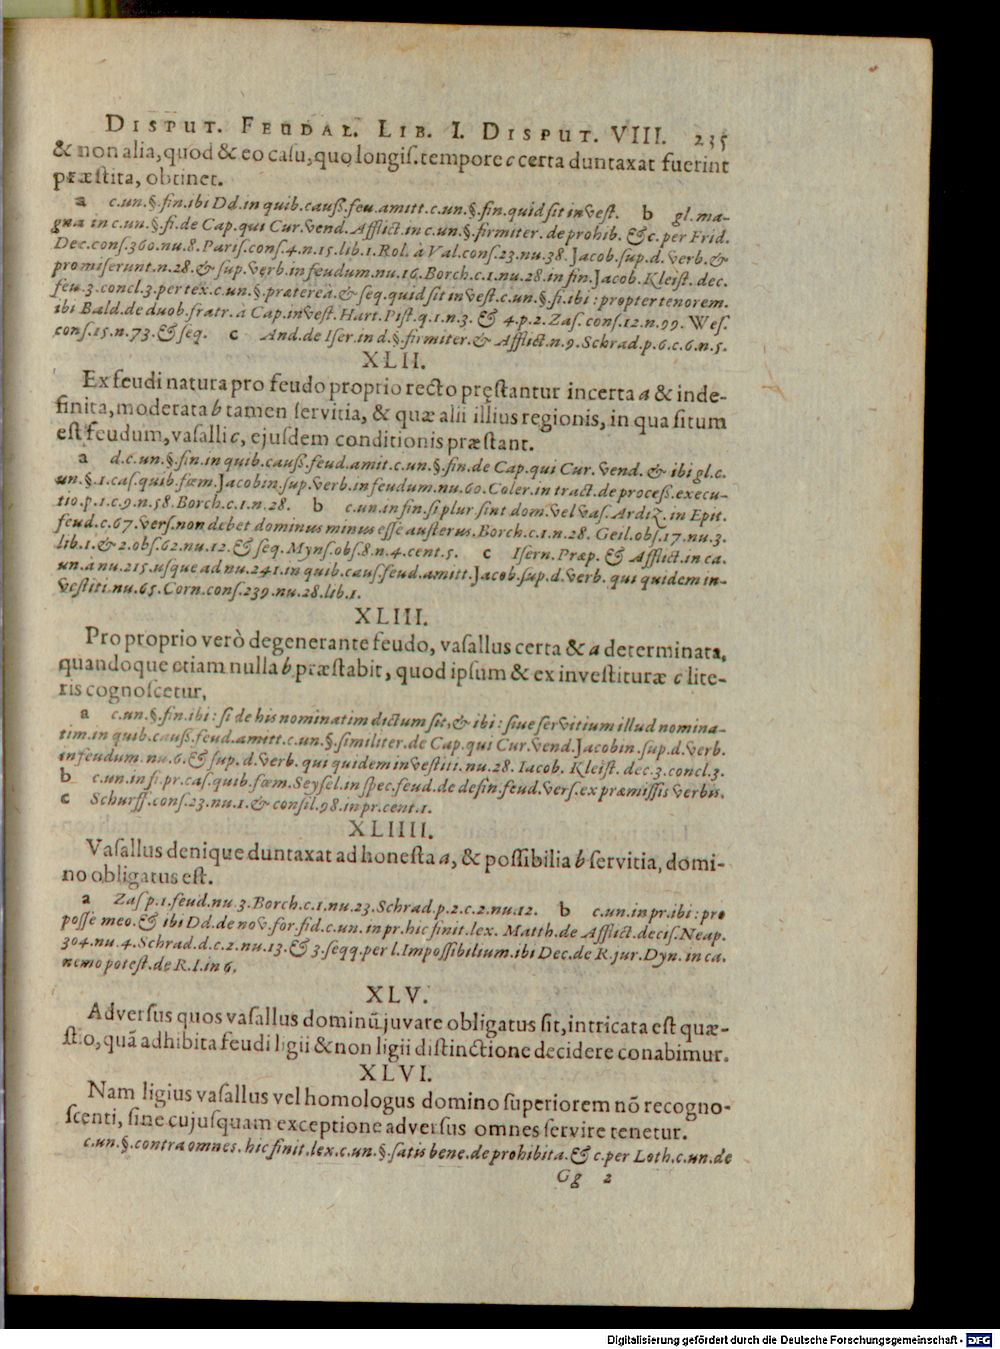 DISPUT. FEUDAL. LIB. I. DISPUT. VIII. 235
& non alia, quod & eo casu, quo longis. tempore c certa duntaxat fuerint
præstita, obtinet.
a c. un. §. fin. ibi Dd. in quib. cauß. feu. amitt. c. un. §. fin. quid sit invest. b gl. ma-
gna in c. un. §. fi. de Cap. qui Cur. vend. Afflict. in c. un. §. firmiter. de prohib. & c. per Frid.
Dec. cons. 360. nu. 8. Paris. cons. 4. n. 15. lib. 1. Rol. à Val. cons. 23. nu. 38. Jacob. sup. d. verb. &
promiserunt. n. 28. & sup. verb. in feudum. nu. 16. Borch. c. 1. nu. 28. in fin. Jacob. Kleist. dec.
feu. 3. concl. 3. per tex. c. un. §. præterea. & seq. quid sit invest. c. un. §. fi. ibi: propter tenorem.
ibi Bald. de duob. fratr. a Cap. invest. Hart. Pist. q. 1. n. 3. & 4. p. 2. Zas. cons. 12. n. 99. Wes.
cons. 15. n. 73. & seq. c And. de Iser. in d. §. firmiter. & Afflict. n. 9. Schrad. p. 6. c. 6. n. 5.
XLII.
Ex feudi natura pro feudo proprio recto pręstantur incerta a & inde-
finita, moderata b tamen servitia, & quæ alii illius regionis, in qua situm
est feudum, vasalli c, ejusdem conditionis præstant.
a d. c. un. §. fin. in quib. cauß. feud. amit. c. un. §. fin. de Cap. qui Cur. vend. & ibi gl. c.
un. §. 1. cas. quib. fœm. Jacobin. sup. verb. in feudum. nu. 60. Coler. in tract. de proceß. execu-
tio. p. 1. c. 9. n. 58. Borch. c. 1. n. 28. b c. un. in fin. si plur. sint dom. vel vas. Ardiz. in Epit.
feud. c. 67. vers. non debet dominus minus esse austerus. Borch. c. 1. n. 28. Geil. obs. 17. nu. 3.
lib. 1. & 2. obs. 62. nu. 12. & seq. Myns. obs. 8. n. 4. cent. 5. c Isern. Præp. & Afflict. in ca.
un. a nu. 215. usque ad nu. 241. in quib. caus. feud. amitt. Jacob. sup. d. verb. qui quidem in-
vestiti. nu. 65. Corn. cons. 239. nu. 28. lib. 1.
XLIII.
Pro proprio verò degenerante feudo, vasallus certa & a determinata,
quandoque etiam nulla b præstabit, quod ipsum & ex investituræ c lite-
ris cognoscetur,
a c. un. §. fin. ibi: si de his nominatim dictum sit, & ibi: sive servitium illud nomina-
tim. in quib. cauß. feud. amitt. c. un. §. similiter. de Cap. qui Cur. vend. Jacobin. sup. d. verb.
in feudum. nu. 6. & sup. d. verb. qui quidem investiti. nu. 28. Iacob. Kleist. dec. 3. concl. 3.
b c. un. in fi. pr. cas. quib. fœm. Seysel. in spec. feud. de defin. feud. vers. ex præmissis verbis.
c Schurff. cons. 23. nu. 1. & consil. 98. in pr. cent. 1.
XLIIII.
Vasallus denique duntaxat ad honesta a, & possibilia b servitia, domi-
no obligatus est.
a Zas p. 1. feud. nu. 3. Borch. c. 1. nu. 23. Schrad. p. 2. c. 2. nu. 12. b c. un. in pr. ibi: pro
posse meo. & ibi Dd. de nov. for. fid. c. un. in pr. hic finit. lex. Matth. de Afflict. decis. Neap.
304. nu. 4. Schrad. d. c. 2. nu. 13. & 3. seqq. per l. Impossibilium. ibi Dec. de R. jur. Dyn. in ca.
nemo potest. de R. I. in 6.
XLV.
Adversus quos vasallus dominū juvare obligatus sit, intricata est quæ-
stio, quā adhibita feudi ligii & non ligii distinctione decidere conabimur.
XLVI.
Nam ligius vasallus vel homologus domino superiorem nō recogno-
scenti, sine cujusquam exceptione adversus omnes servire tenetur.
c. un. §. contra omnes. hic finit. lex. c. un. §. satis bene. de prohibita. & c. per Loth. c. un. de
Gg 2
Digitalisierung gefördert durch die Deutsche Forschungsgemeinschaft - DFG